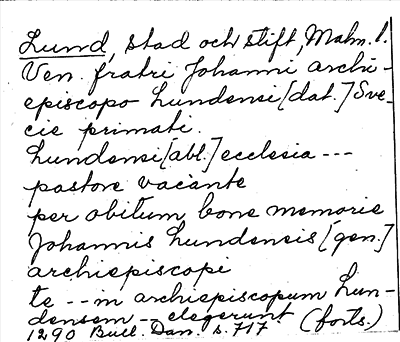 Lund, stad och stift, Malm. l.
Ven. fratri Johanni archi-
episcopo Lundensi [dat.] Sve-
cie primati.
Lundensi [abl.] ecclesia ---
pastore vacante
per obitum bone memorie
Johannis Lundensis [gen.]
archiepiscopi
te -- in archiepiscopum Lun-
densem -- elegerunt (forts.)
1290 Bull. Dan. s. 717